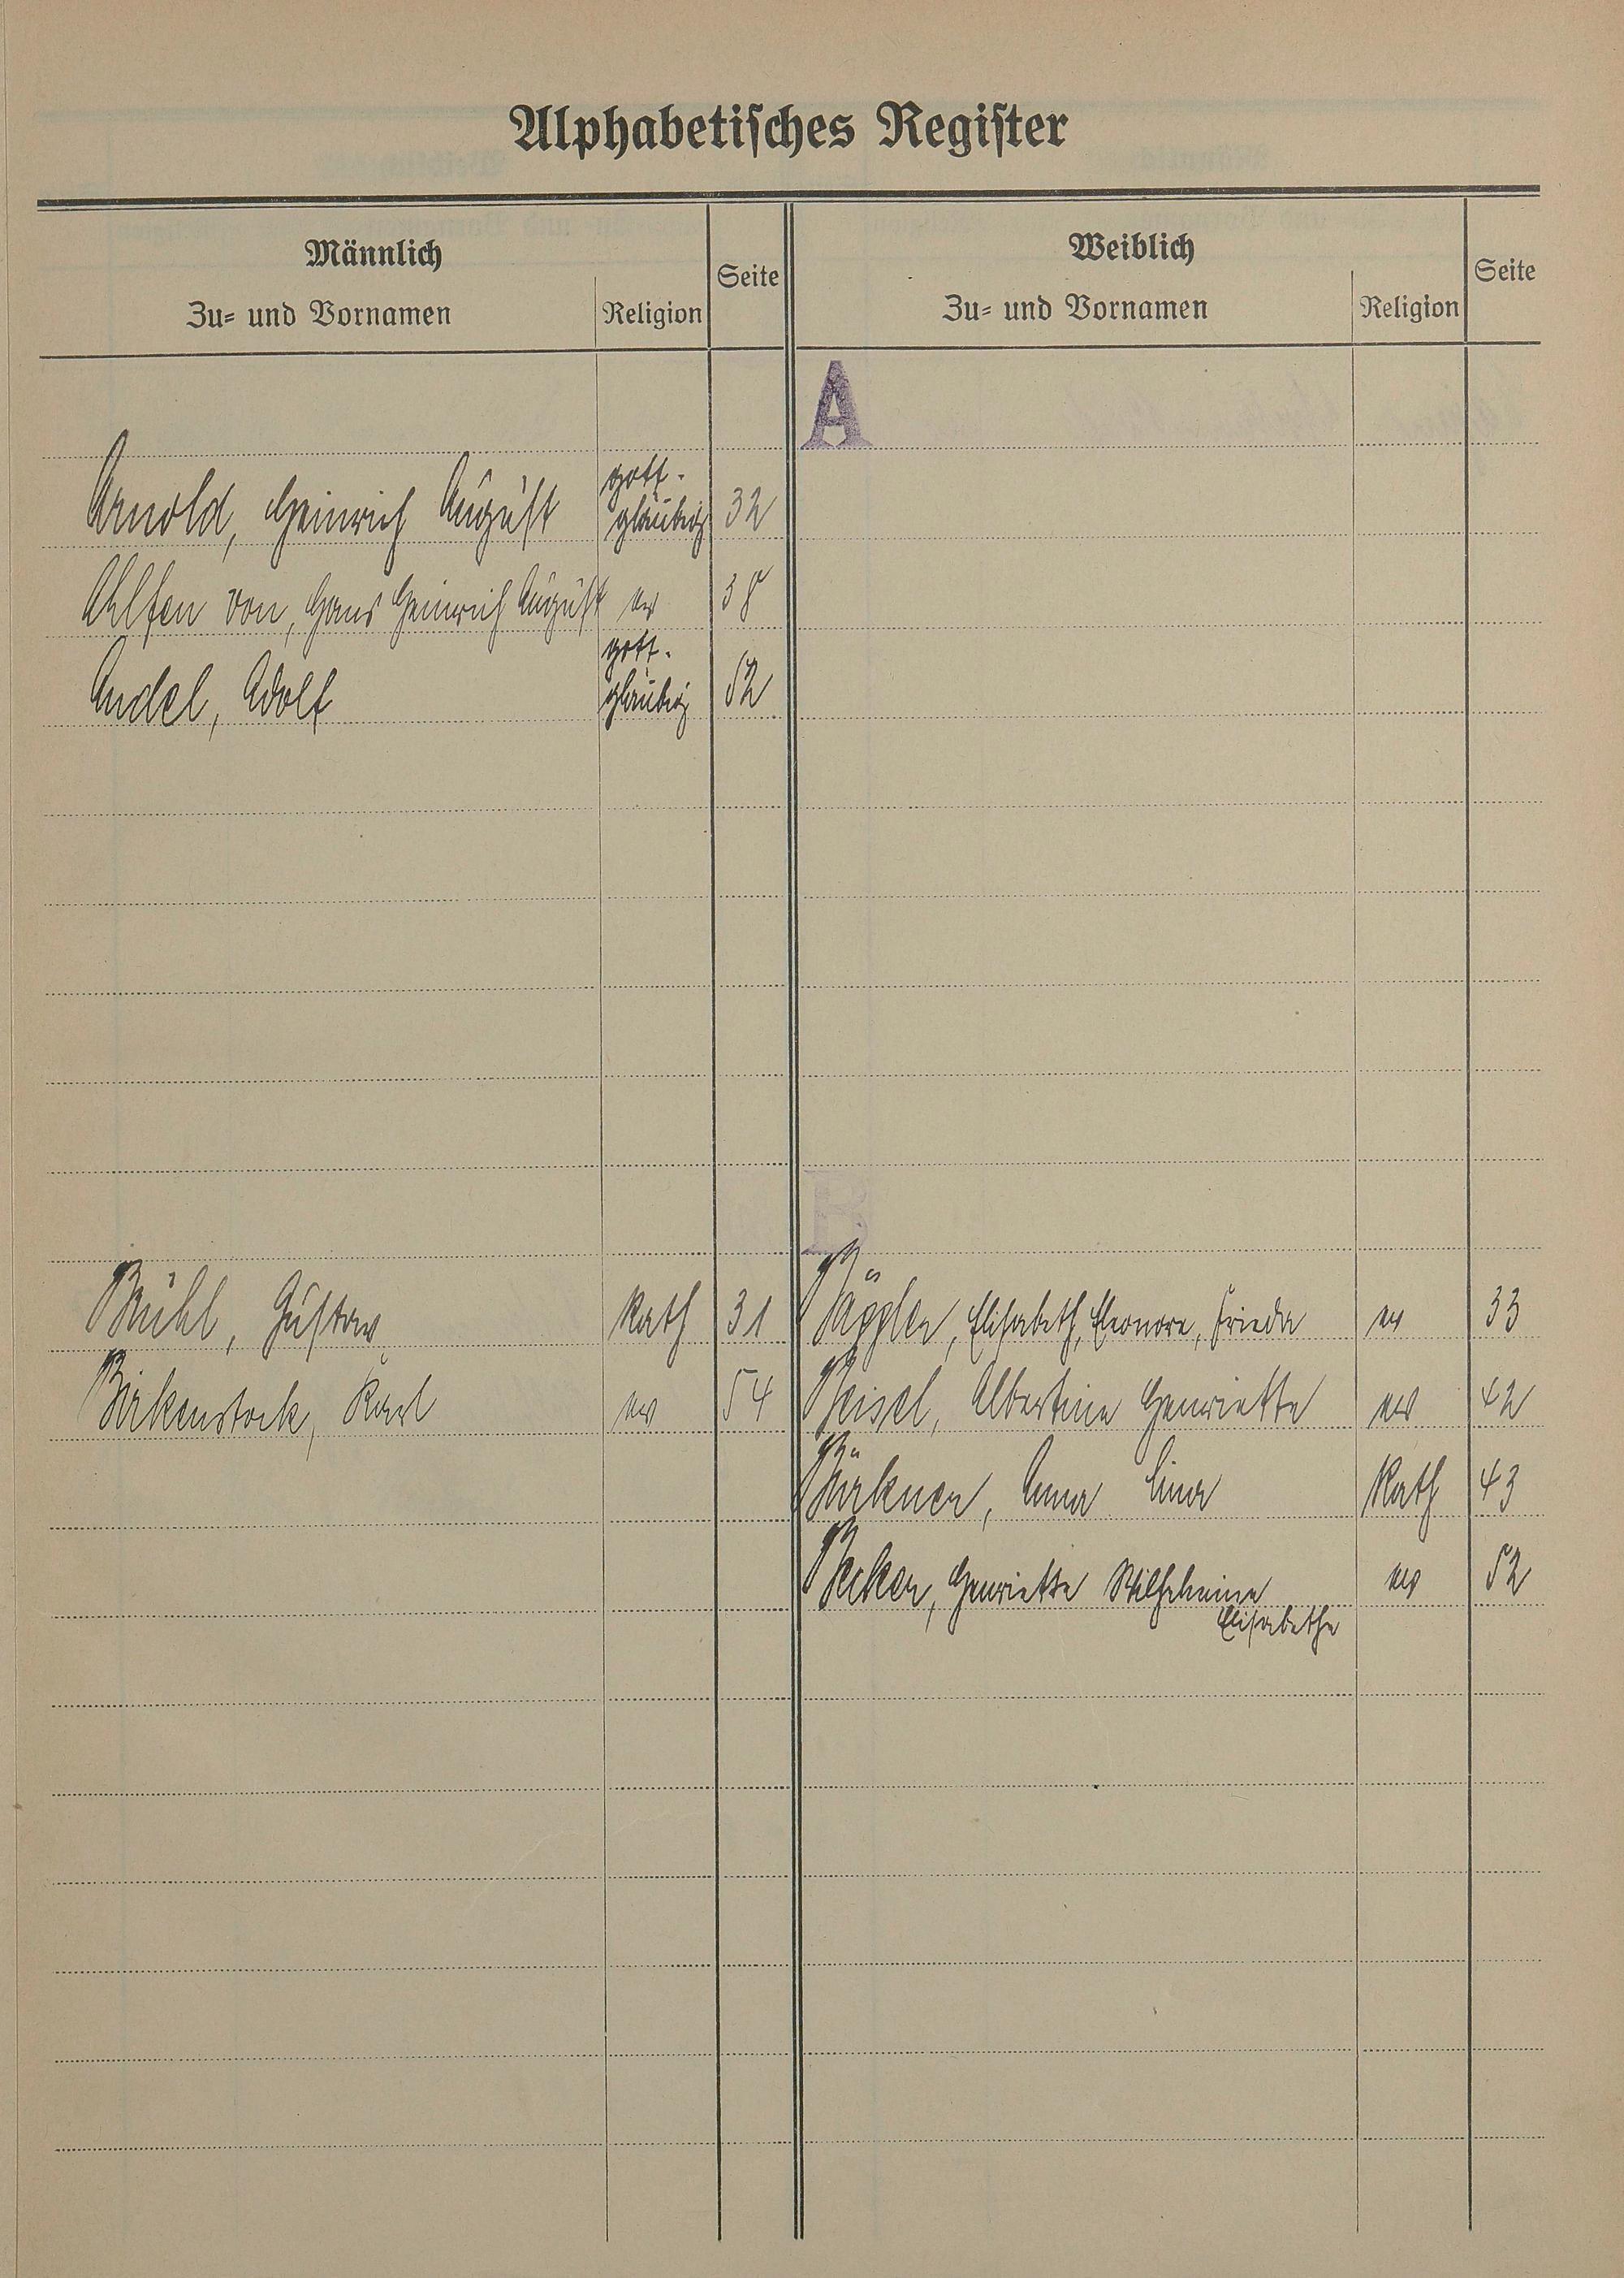 Alphabetisches Register
Männlich
Zu- und Vornamen
Religion
Seite
Weiblich
Zu- und Vornamen
Religion
Seite
A
Arnold, Heinrich August gott-
gläubig 32
Ahlfen von, Hans Heinrich August ev 38
Andel, Adolf gott-
gläubig 52
B
Bühl, Gustav Kath 31
Birkenstock, Karl ev 54
Bäppler, Elisabeth, Eleonore, Frieda ev 33
Beisel, Albertine Henriette ev 42
Bürkner, Anna Lina Kath 43
Becker, Henriette Wilhelmine
Elisabethe ev 52